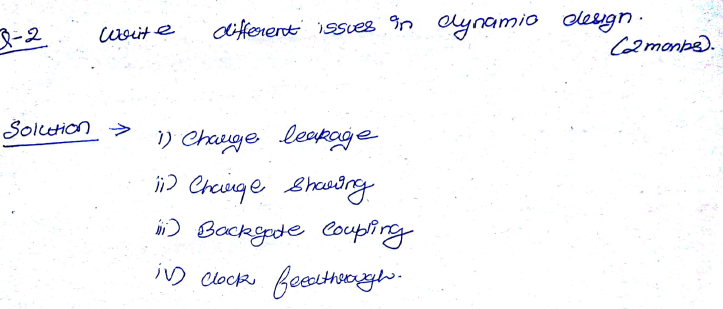 Q-2 Write different issues in dynamic design.
(2 marks).
Solution → i) Charge leakage
ii) Charge sharing
iii) Backgate coupling
iv) Clock feedthrough.